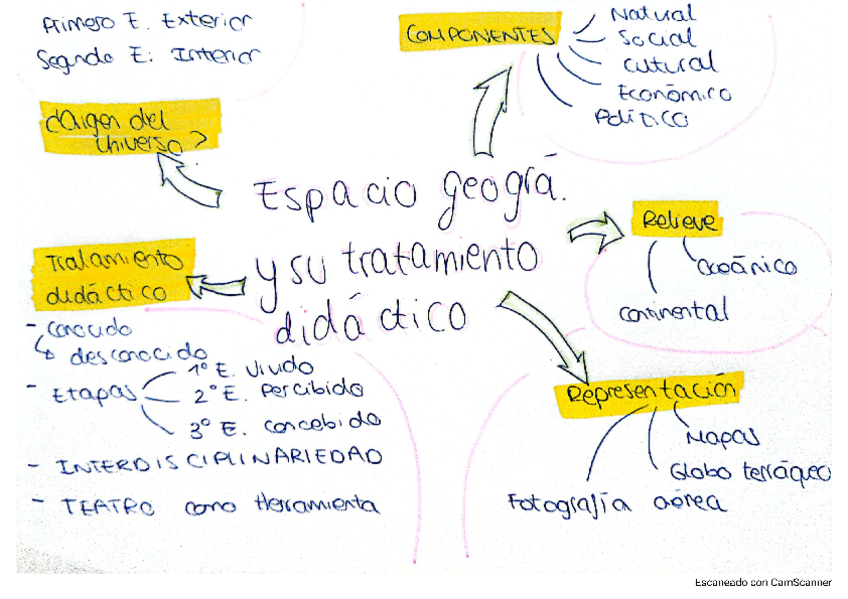 Primero E. Exterior
Segundo E: Interior
¿Origen del
Universo?
COMPONENTES
Natural
Social
Cultural
Económico
Político
Espacio geográ.
y su tratamiento
didáctico
Relieve
Oceánico
Continental
Tratamiento
didáctico
- Conocido
↳ desconocido
- Etapas
1º E. Vivido
2º E. Percibido
3º E. Concebido
- INTERDISCIPLINARIEDAD
- TEATRO como Herramienta
Representación
Mapas
Globo terráqueo
Fotografía aérea
Escaneado con CamScanner